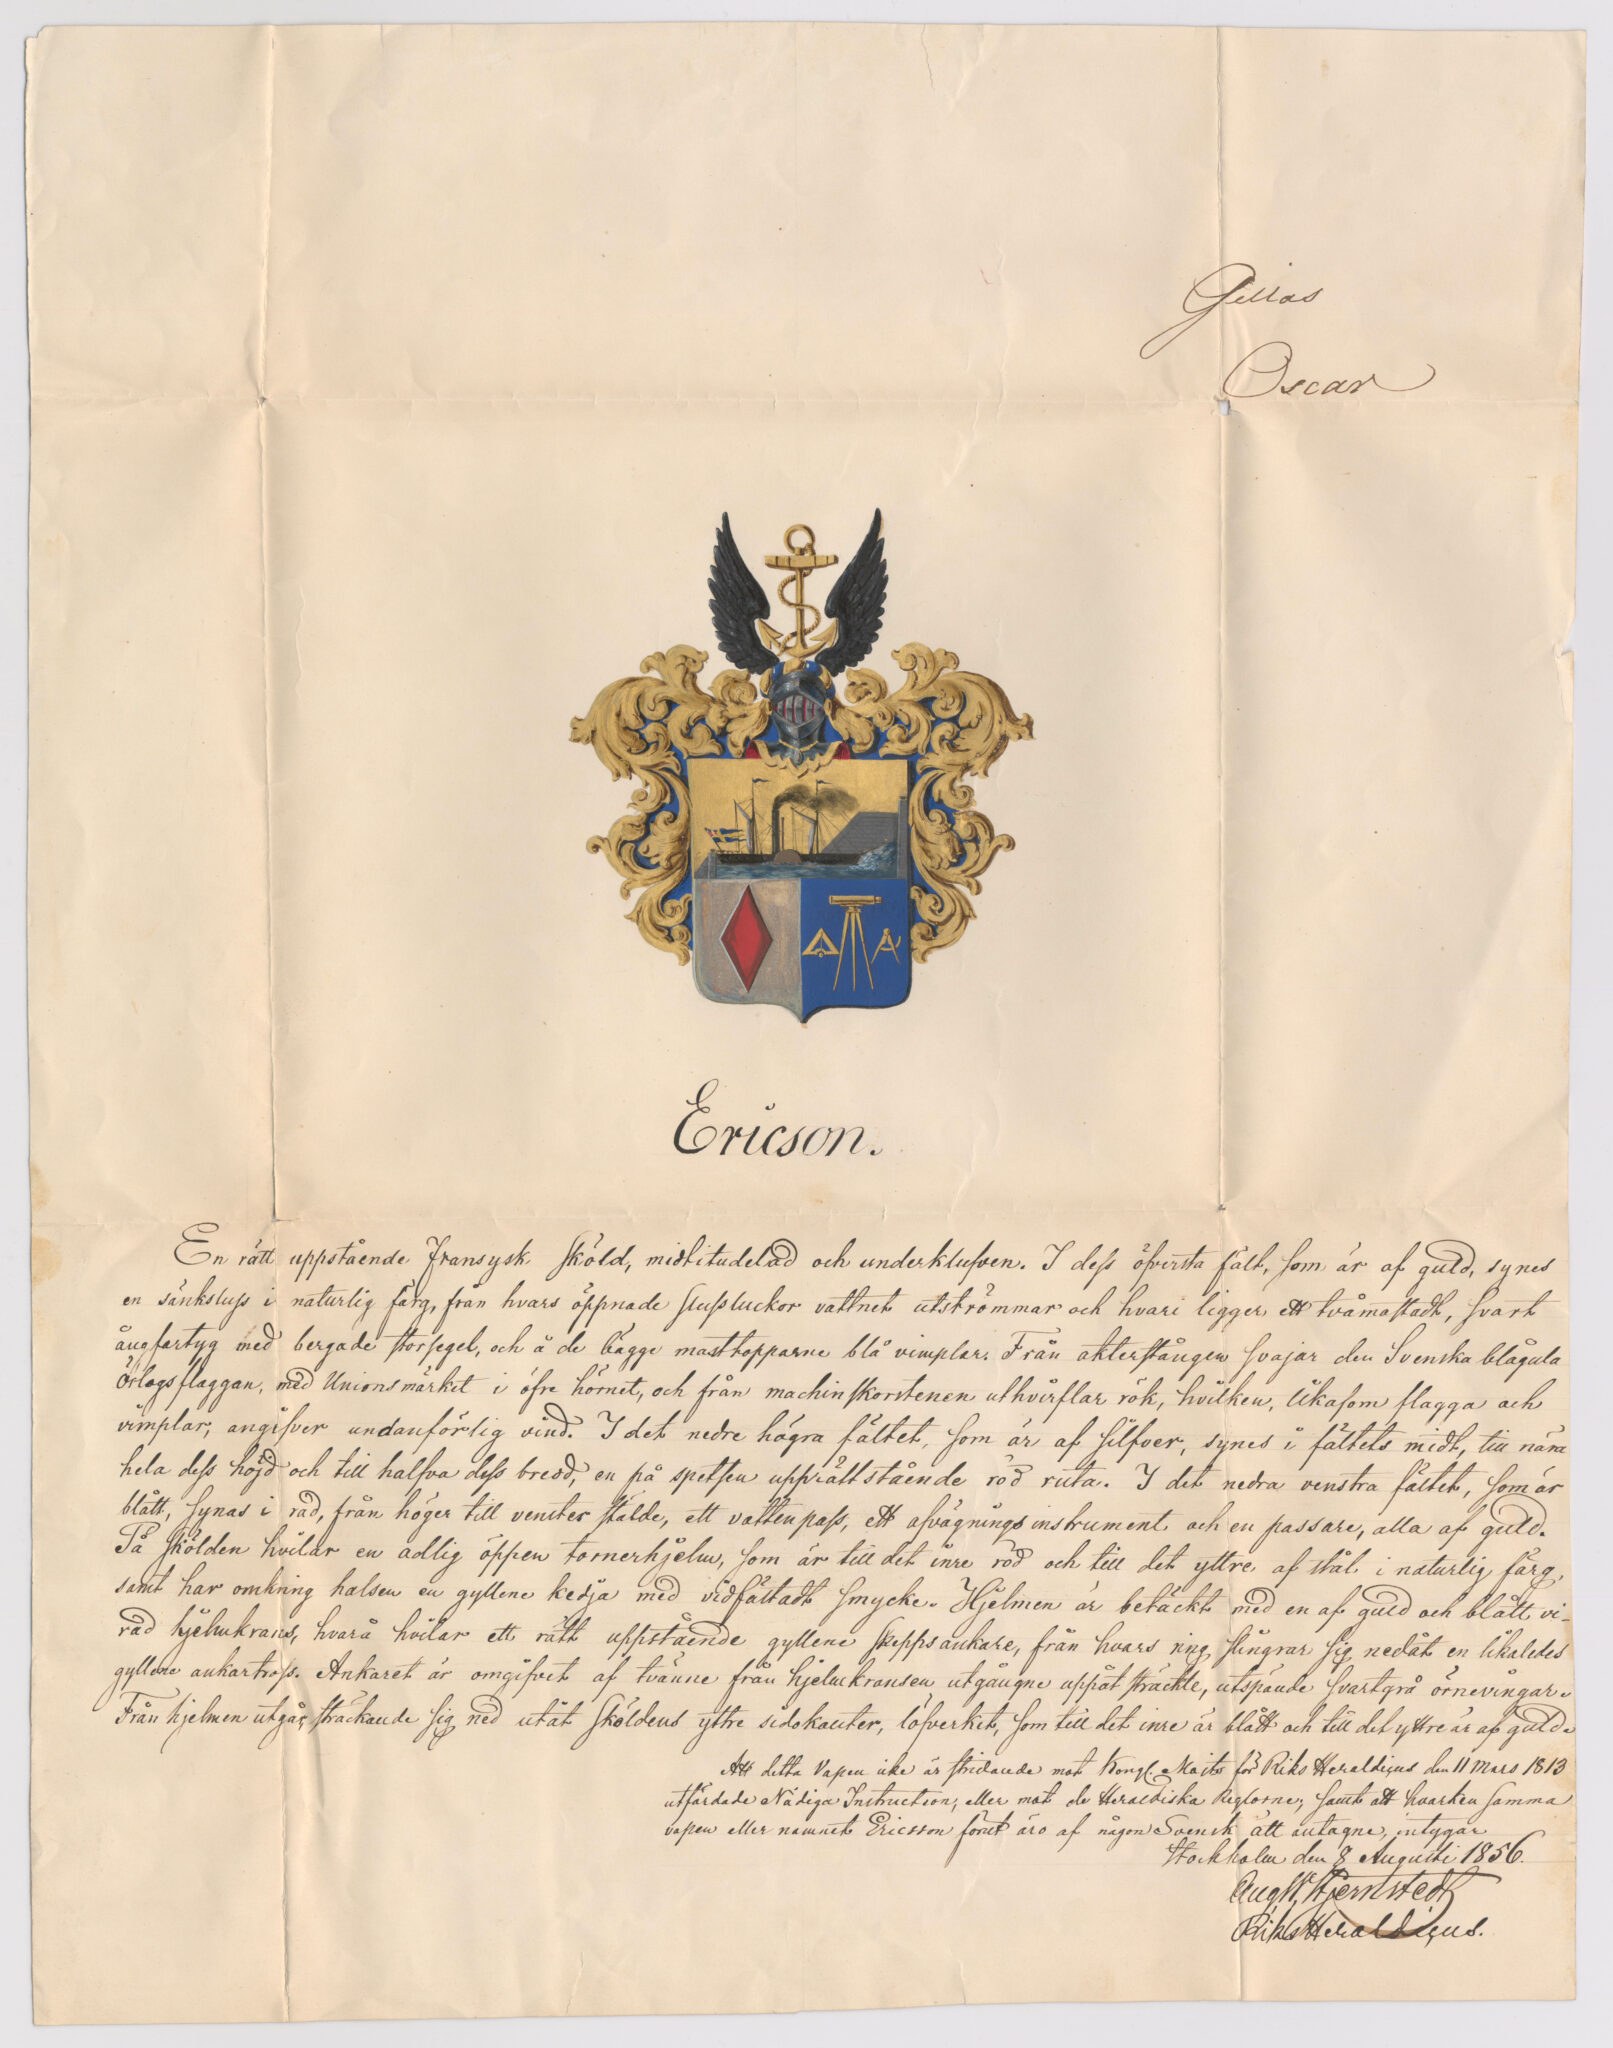 Gillas
Oscar
Ericson.
En rätt uppstående Fransysk Sköld, midtitudelad och underklufven. I dess öfversta fält, som är af guld, synes
en sänksluss i naturlig färg, från hvars öppnade slussluckor vattnet utströmmar och hvari ligger ett tvåmastadt, svart
ångfartyg med bergade storsegel, och å de bägge masttopparne blå vimplar. Från akterstången svajar den Svenska blågula
Örlogsflaggan, med Unionsmärket i öfre hörnet, och från machinskorstenen uthvirflar rök, hvilken, likasom flagga och
vimplar, angifver undanförlig vind. I det nedre högra fältet, som är af silfver, synes i fältets midt, till nära
hela dess höjd och till halfva dess bredd, en på spetsen upprättstående röd ruta. I det nedra venstra fältet, som är
blått, synas i rad, från höger till venster stälde, ett vattenpass, ett afvägningsinstrument och en passare, alla af guld.
På skölden hvilar en adlig öppen tornerhjelm, som är till det inre röd och till det yttre af stål i naturlig färg,
samt har omkring halsen en gyllene kedja med vidfästadt smycke. Hjelmen är betäckt med en af guld och blått vi-
rad hjelmkrans, hvarå hvilar ett rätt uppstående gyllene skeppsankare, från hvars ring slingrar sig nedåt en likaledes
gyllene ankartross. Ankaret är omgifvet af tvänne från hjelmkransen utgångne uppåt sträckte, utspände svartgrå örnevingar.
Från hjelmen utgår, sträckande sig ned utåt sköldens yttre sidokanter, löfverket, som till det inre är blått och till det yttre är af guld.
Att detta Vapen icke är stridande mot Kongl. Maits för Riks Heraldicus den 11 Mars 1813
utfärdade Nådiga Instruction, eller mot de Heraldiska Reglorne, samt att hvarken samma
vapen eller namnet Ericsson förut äro af någon Svensk ätt antagne, intygar
Stockholm den 8 Augusti 1856.
Aug. W. Stjernstedt
Riks Heraldicus.